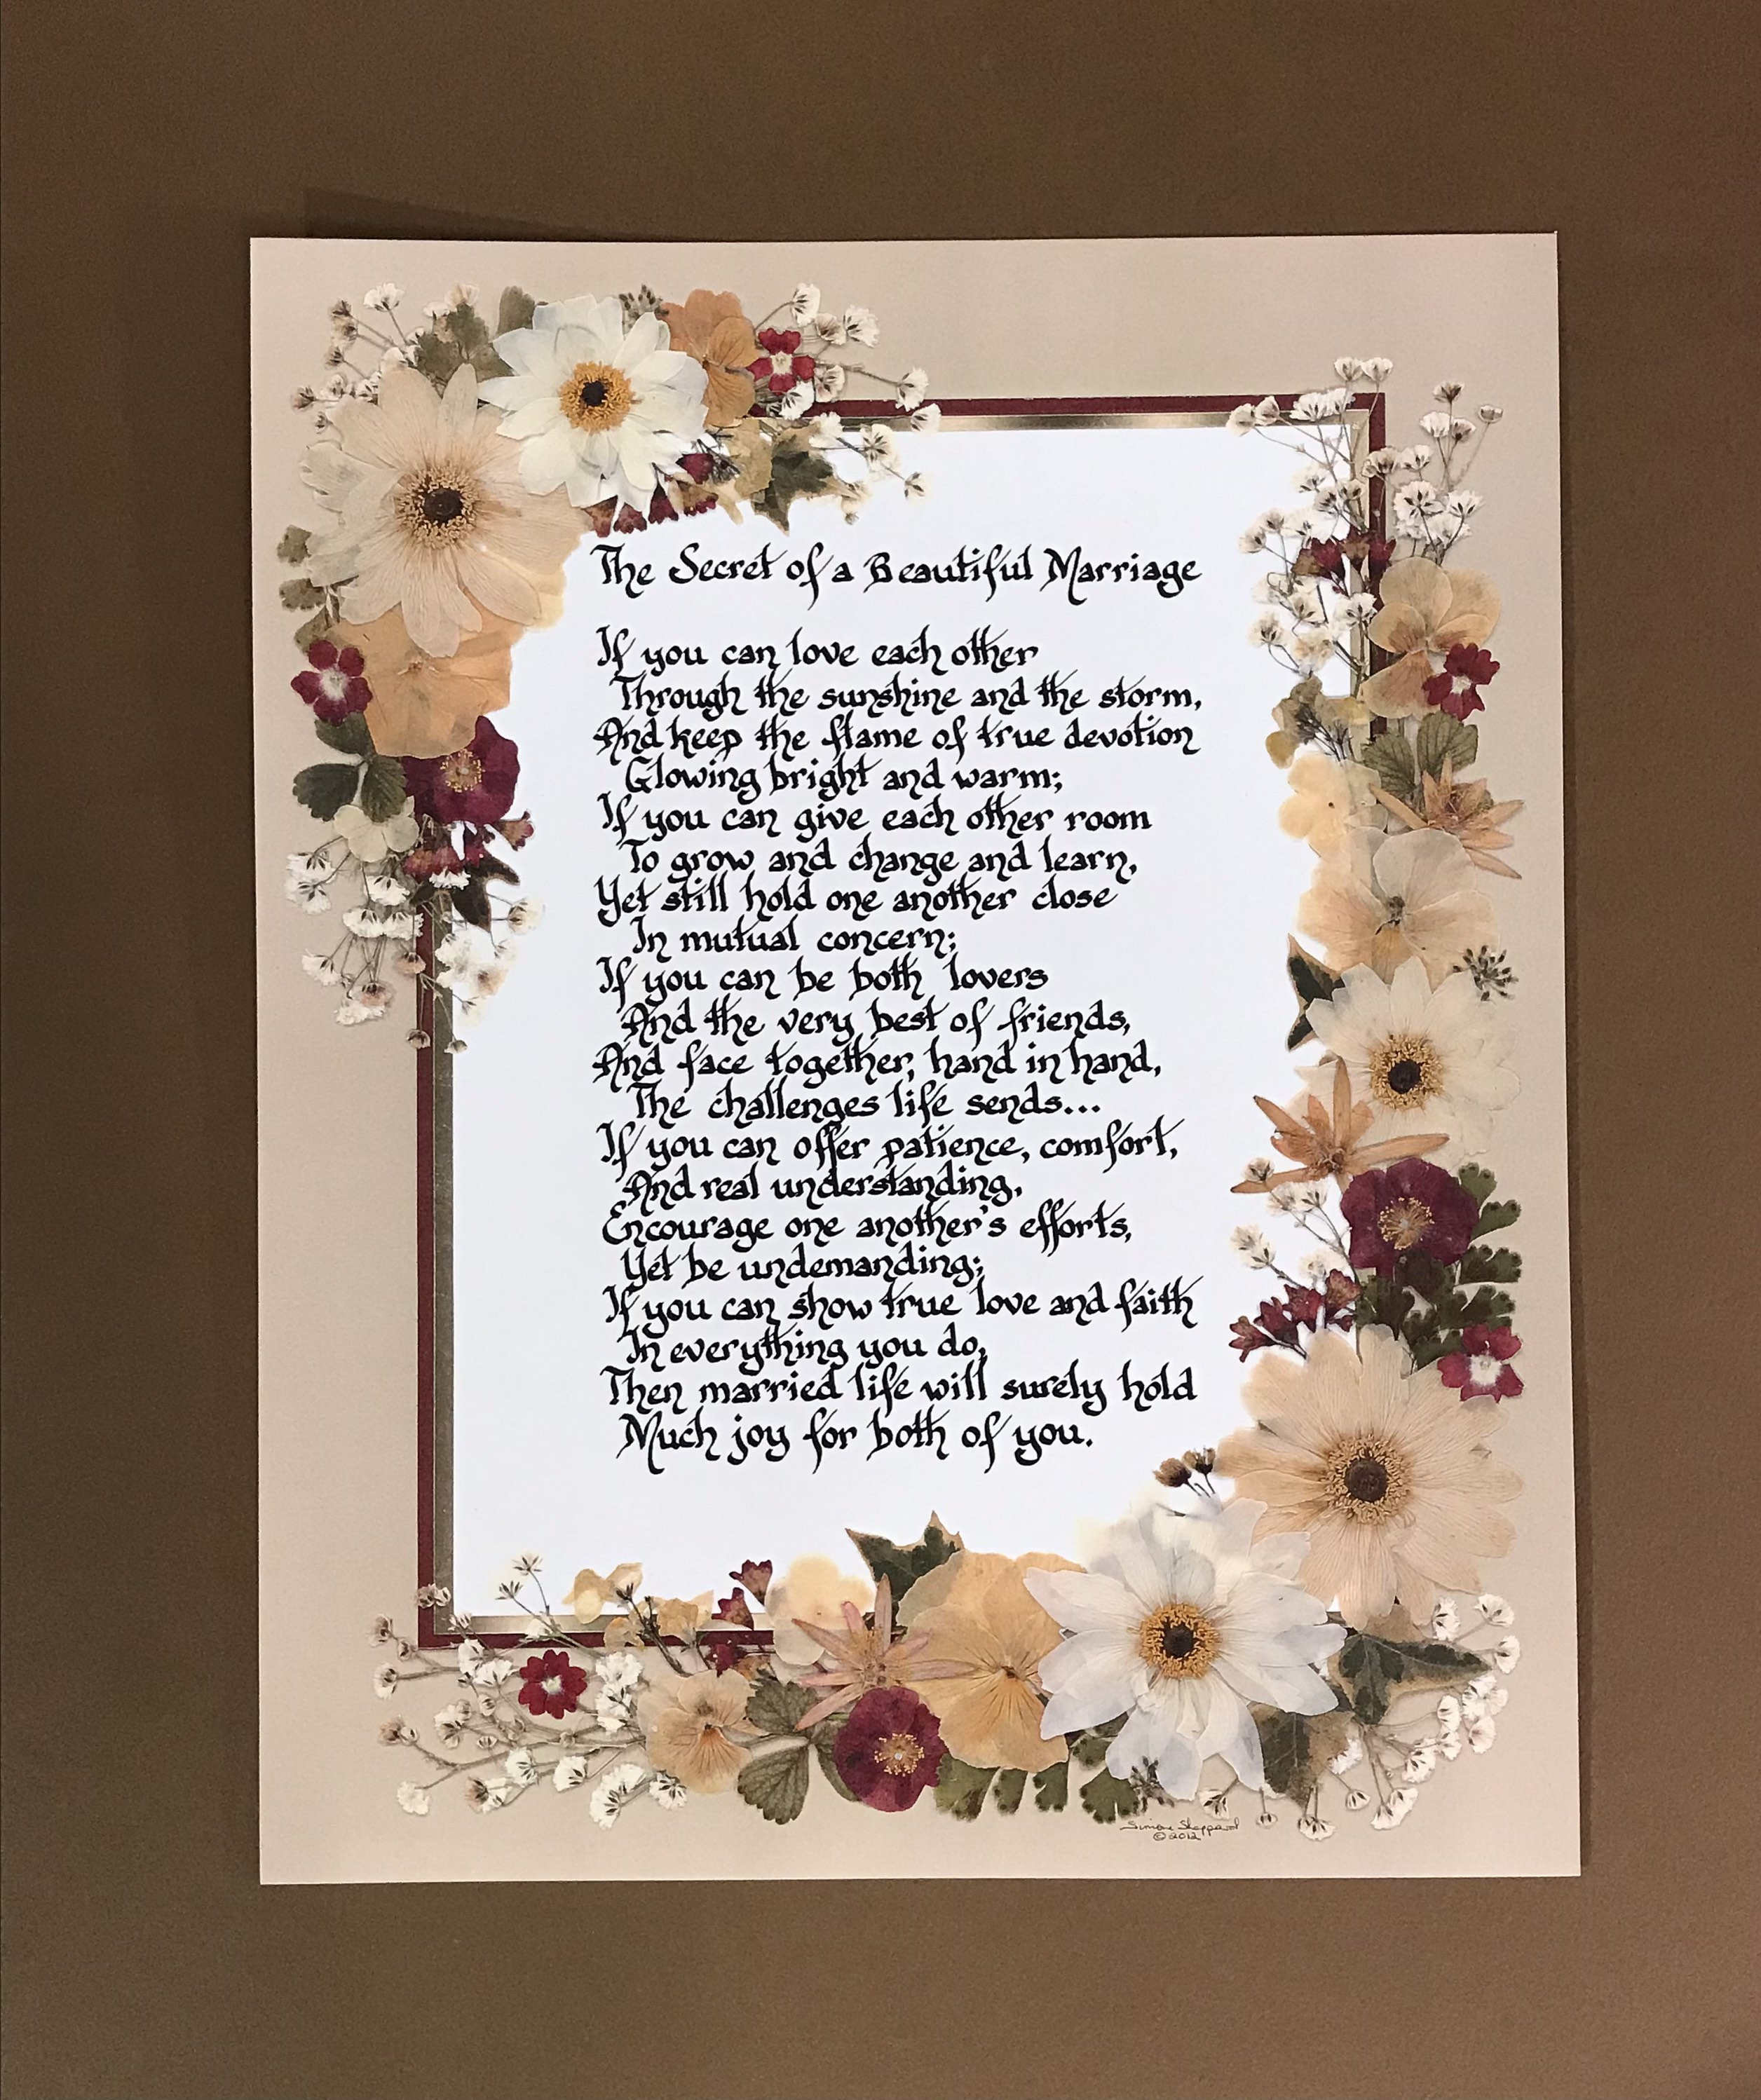 The Secret of a Beautiful Marriage
If you can love each other
Through the sunshine and the storm,
And keep the flame of true devotion
Glowing bright and warm;
If you can give each other room
To grow and change and learn,
Yet still hold one another close
In mutual concern;
If you can be both lovers
And the very best of friends,
And face together, hand in hand,
The challenges life sends...
If you can offer patience, comfort,
And real understanding,
Encourage one another's efforts,
Yet be undemanding;
If you can show true love and faith
In everything you do,
Then married life will surely hold
Much joy for both of you.
Simone Sheppard
© 2012